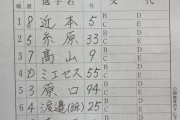 選手名 交代
1 8 近本 5 B C D E
2 5 糸原 33 B C D E
3 7 高山 9 B C D E
4 D ミエセス 55 B C D E
5 3 原口 94 B C D E
6 4 渡邉(諒) 25 B C D E